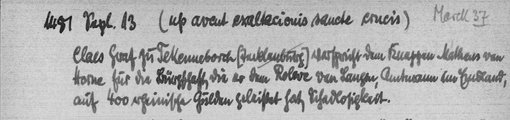 1481 Sept. 13 (up avent exaltacionis sancte crucis) Marck 37
Claes Graf zu Tekenneborch [Tecklenburg] verspricht dem Knappen Matheus van
Horne für die Bürgschaft, die er dem Rolove van Langen, Amtmann im Emsland,
auf 400 rheinische Gulden geleistet hat, Schadlosigkeit.